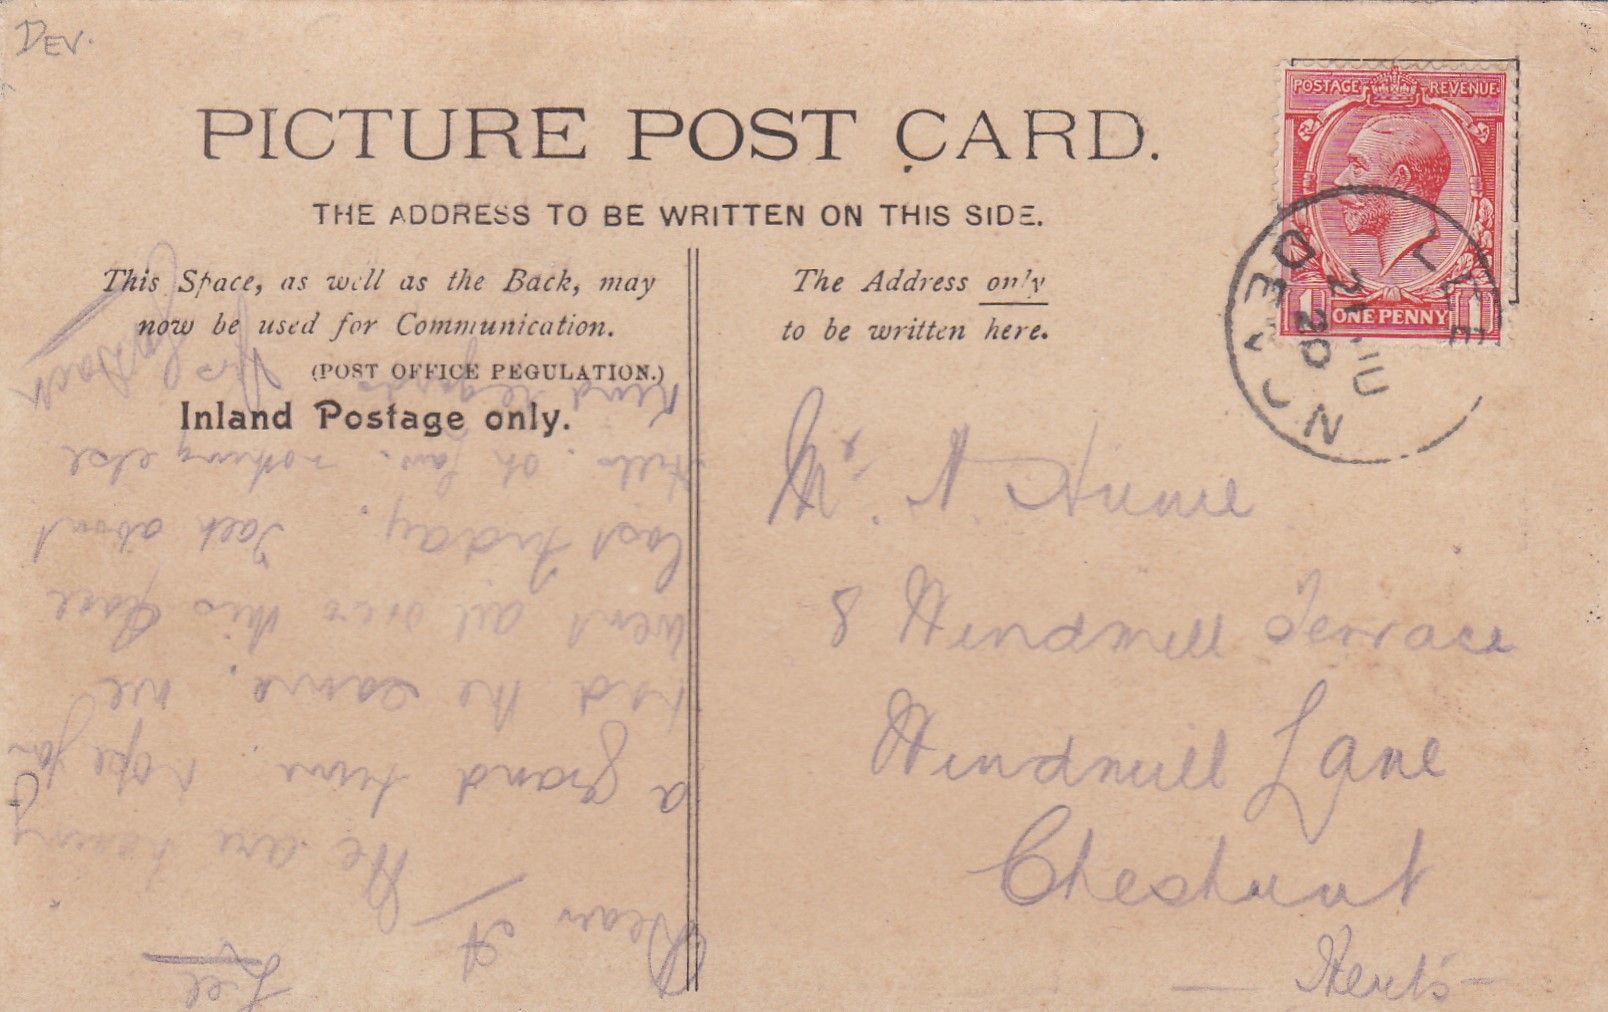 DEV.
PICTURE POST CARD.
THE ADDRESS TO BE WRITTEN ON THIS SIDE.
This Space, as well as the Back, may
now be used for Communication.
(POST OFFICE REGULATION.)
Inland Postage only.
The Address only
to be written here.
POSTAGE REVENUE
1 ONE PENNY 1
LEE
Dear A
We are having
a grand time. hope you
had the same. we
went all over this place
last Friday. Jack about
else
Kind regards
Mrs
Jack
A.
8 Windmill Terrace
Windmill Lane
Cheshunt
Herts